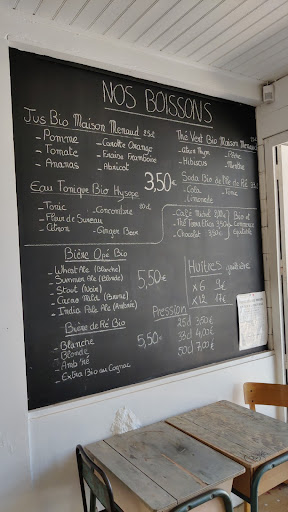 NOS BOISSONS
Jus Bio Maison Meneau 25cl
- Pomme - Carotte Orange
- Tomate - Fraise Framboise
- Ananas - Abricot
Thé Vert Bio Maison Meneau
- Citron Thym - Pêche
- Hibiscus - Menthe
3,50€
Soda Bio de l'Ile de Ré
- Cola - Tonic
- Limonade
Eau Tonique Bio Hysope
- Tonic - Concombre
- Fleur de Sureau
- Citron - Ginger Beer
- Café
- Thé
- Chocolat 3,50€
Bio et
Commerce
équitable
Bière Opé Bio
- Wheat Ale (Blanche)
- Summer Ale (Blonde)
- Stout (Noire)
- Cacao Mild (Brune)
- India Pale Ale (Ambrée)
5,50€
Huîtres
x 6 9€
x 12 17€
Bière de Ré Bio
- Blanche
- Blonde
- Amb'ré
- Extra Bio au Cognac
5,50€
Pression
25cl 3,50€
33cl 4,00€
50cl 7,00€